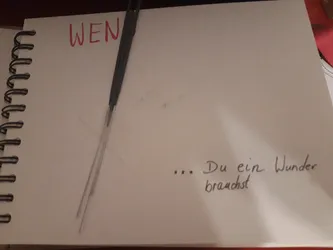 WEN
... Du ein Wunder
brauchst